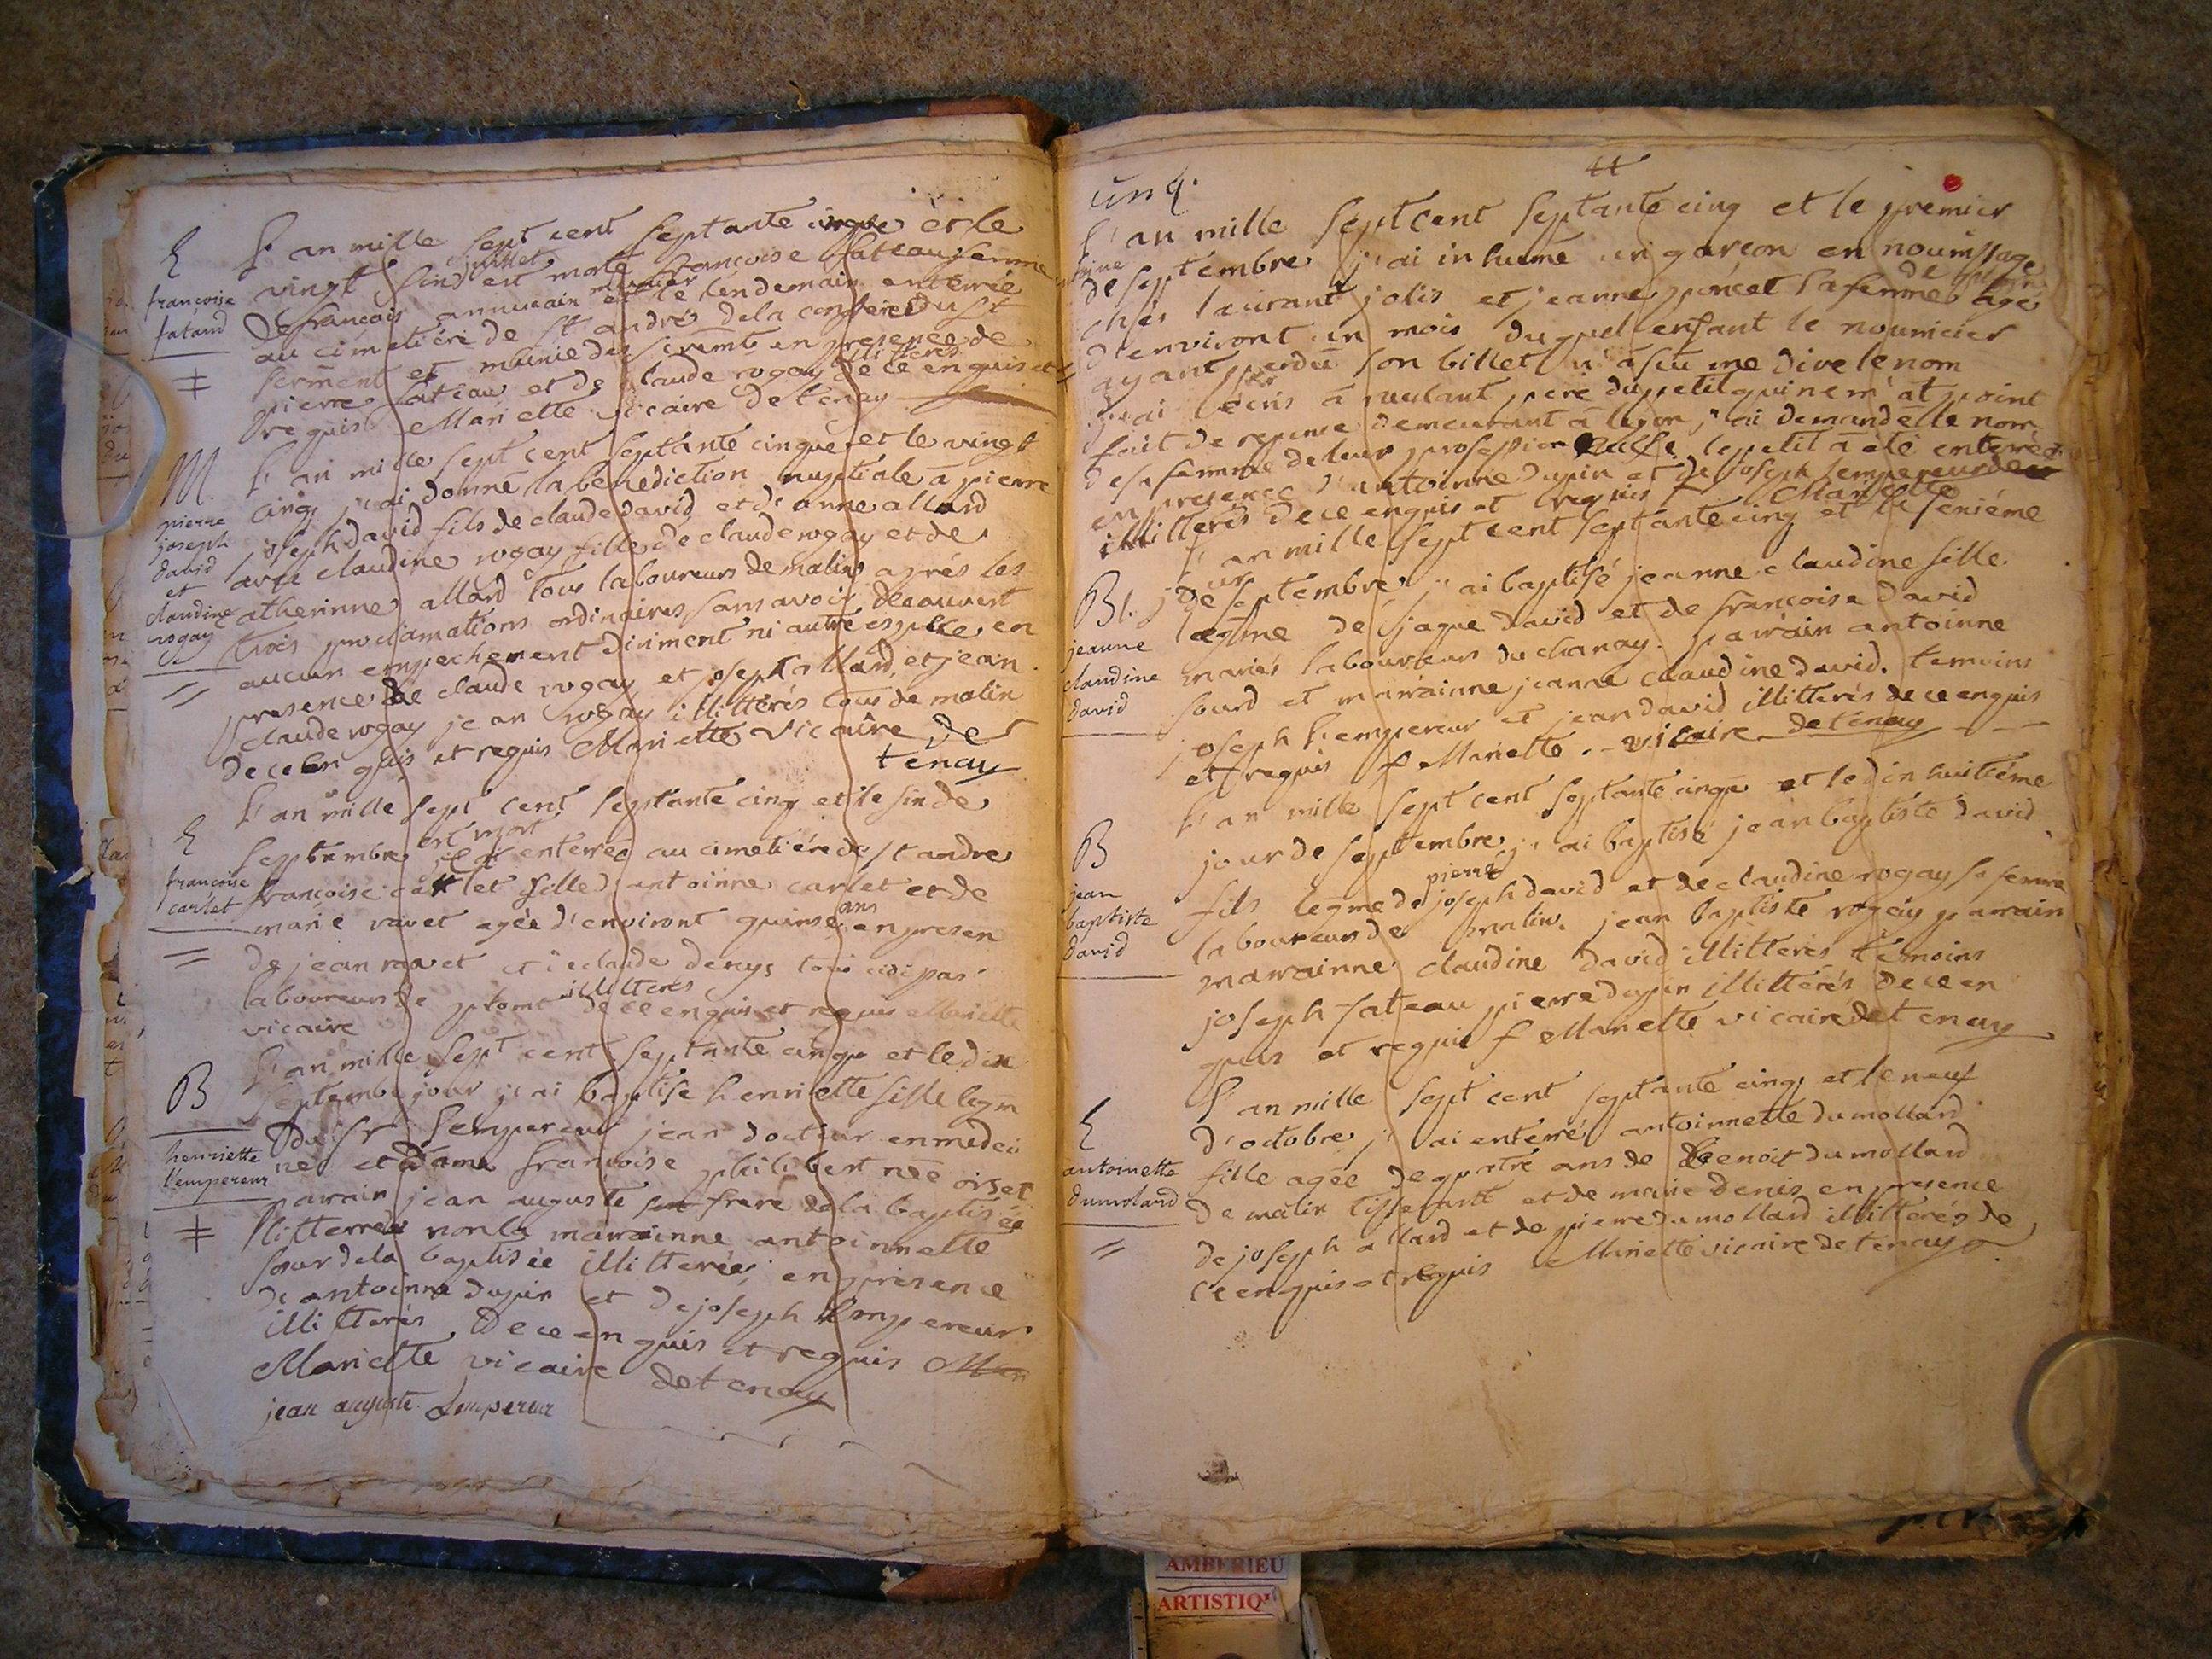 E
françoise
fatand
L'an mille sept cent septante cinque et le
vingt sind juillet est morte françoise fateau femme
de françois annuiain munier et le lendemain enterrée
au cimetiére de st andrés de la confrerie du st
serment et munie des scremts en presence de
pierre fateau et de claude rogay illiteres de ce enquis et
requis Mariette vicaire de tenay
M.
pierre
joseph
david
et
claudine
rogay
L'an mille sept cent septante cinque et le vingt
cinq j'ai donné la benediction nuptiale à pierre
joseph david fils de claude david et d'anne allard
avec claudine rogay fille de claude rogay et de
catherinne allard tous laboureurs de malin après les
trois proclamations ordinaires sans avoir decouvert
aucun empechement diriment ni autre espece en
presence de claude rogay et joseph allard et jean
claude rogay jean rogay illitterés tous de malin
de ce enquis et requis Mariette Vicaire de
tenay
E
francoise
carlet
L'an mille sept cent septante cinq et le sin de
septembre est mort et enterreé au cimetiére de st andre
françoise carlet fille d'antoinne carlet et de
marie ravet agée d'environt quinse ans en presen
de jean ravet et de claude denys
laboureurs de illitterés de ce enquis et requis Mariette
vicaire
B
henriette
l'empereur
L'an mille sept cent septante cinque et le dix
septembe jour j'ai baptise henriette fille legm
du sr l'empereur jean docteur en medeci
ne et dame francoise philibert née orset
parrain jean auguste son frere de la baptisée
litterrés non la marainne antoinnette
soeur de la baptisée illitterée en presence
de antoinne dupin et de joseph l'empereur
illitterés de ce enquis et requis Mar
Mariette vicaire de tenay
jean auguste Lempereur
cinq.
11
L'an mille sept cent septante cinq et le premier
de septembre j'ai inhumé un garçon en nourissage
chés laurant jolis et jeanne poncet sa femme de agé
d'environt un mois duquel enfant le nouricier
ayant perdu son billet n'a scu me dire le nom
j'ai écris a pere du petit qui ne m'at point
fait de reponse demeurant à lyon, j'ai demandé le nom
de sa femme de leur profession le petit a été enterré
en presence d'antoinne dupin et de joseph lempereur de ce
illitterés de ce enquis et requis Mariette
B.
jeanne
claudine
david
L'an mille sept cent septante cinq et le seniéme
jour de septembre j'ai baptisé jeanne claudine fille
legme de jaque david et de françoise david
mariés laboureurs du chanay. parrain antoinne
sourd et marrainne jeanne claudine david. temoins
joseph l'empereur et jean david illitterés de ce enquis
et requis f Mariette vicaire de tenay
B
jean
baptiste
david
L'an mille sept cent septante cinque et le din huitiéme
jour de septembre j'ai baptisé jean baptiste david
fils legme de pierre joseph david et de claudine rogay sa femme
laboureurs de malin. jean baptiste rogay parrain
marrainne claudine david illitterés temoins
joseph fateau pierre dupin illitterés de ce en
quis et requis f Mariette vicaire de tenay
E
antoinette
dumolard
L'an mille sept cent septante cinq et le neuf
d'octobre j'ai enterré antoinnette dumollard
fille agée de quatre ans de benoit dumollard
de malin tisserant et de marie denis en presence
de joseph allard et de pierre dumollard illitterés de
ce enquis et requis Mariette vicaire de tenay
AMBERIEU
ARTISTIQ